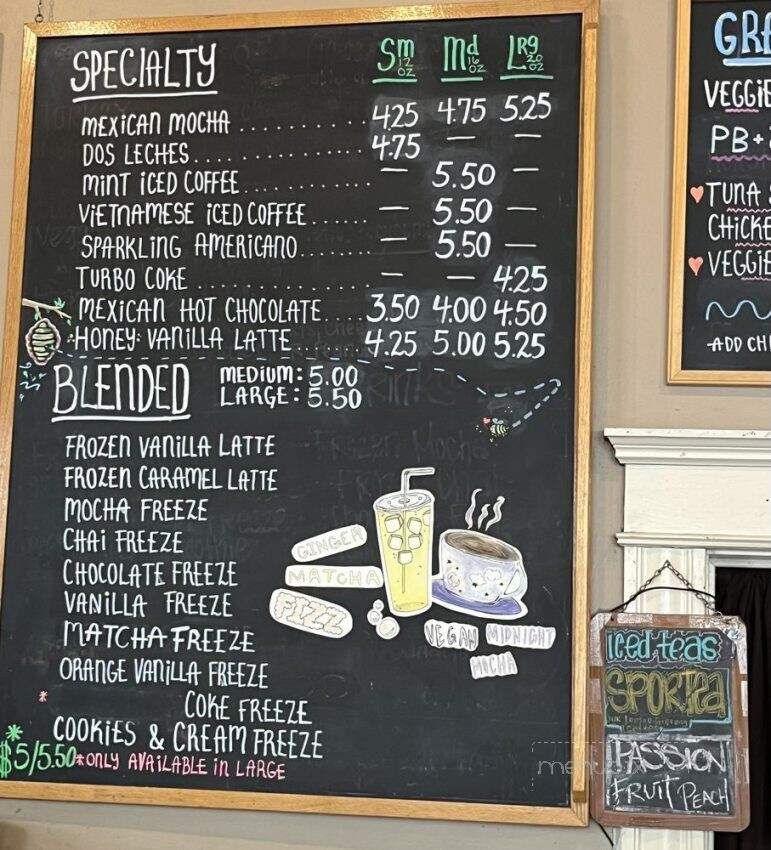 SPECIALTY Sm 12 OZ Md 16 OZ LRG 20 OZ
MEXICAN MOCHA ............ 4.25 4.75 5.25
DOS LECHES ............ 4.75 — —
MINT ICED COFFEE ............ — 5.50 —
VIETNAMESE ICED COFFEE ...... — 5.50 —
SPARKLING AMERICANO ....... — 5.50 —
TURBO COKE ............ — — 4.25
MEXICAN HOT CHOCOLATE .... 3.50 4.00 4.50
HONEY VANILLA LATTE ....... 4.25 5.00 5.25
BLENDED
MEDIUM: 5.00
LARGE: 5.50
FROZEN VANILLA LATTE
FROZEN CARAMEL LATTE
MOCHA FREEZE
CHAI FREEZE
CHOCOLATE FREEZE
VANILLA FREEZE
MATCHA FREEZE
ORANGE VANILLA FREEZE
COKE FREEZE
* COOKIES & CREAM FREEZE
* $5/5.50 *ONLY AVAILABLE IN LARGE
GINGER
MATCHA
FIZZ
VEGAN MIDNIGHT
MOCHA
GR
VEGGIE
PB+
TUNA
CHICKE
VEGGIE
ADD CH
ICED TEAS
SPORTEA
PASSION
FRUIT PEACH